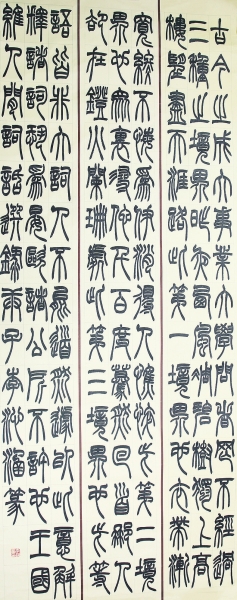 古今之成大事業大學問者罔不經過
三種之境界昨夜西風凋碧樹獨上高
樓望盡天涯路此第一境界也衣帶漸
寬終不悔為伊消得人憔悴此第二境
界也眾裏尋他千百度驀然回首那人
卻在燈火闌珊處此第三境界也此等
語皆非大詞人不能道然遽以此意解
釋諸詞恐為晏歐諸公所不許也王國
維人間詞話選錄丙子篆